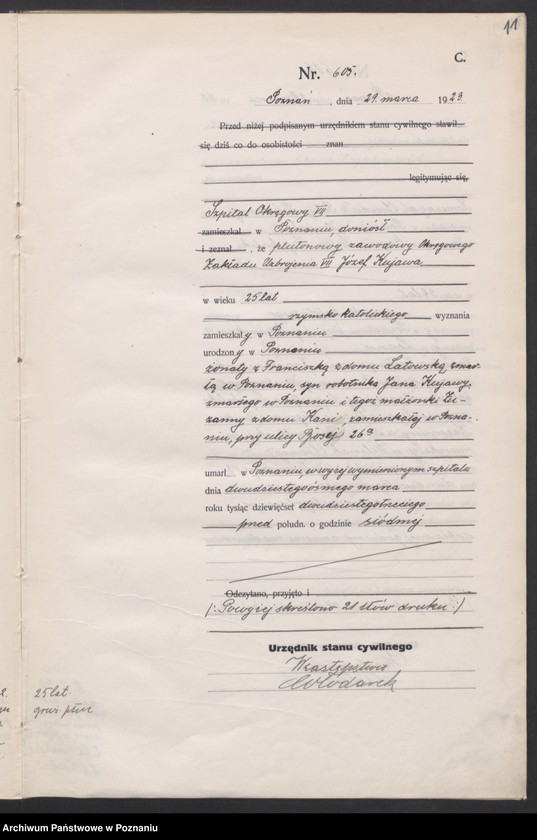 11
C.
Nr. 605.
Poznań, dnia 29. marca 1923
Przed niżej podpisanym urzędnikiem stanu cywilnego stawił
się dziś co do osobistości znan
legitymując się,
Szpital Okręgowy VII
zamieszkał w Poznaniu, doniósł
i zeznał, że plutonowy zawodowy Okręgowego
Zakładu Uzbrojenia VII Józef Kujawa
w wieku 25 lat
rzymsko katolickiego wyznania
zamieszkały w Poznaniu
urodzony w Poznaniu
żonaty z Franciszką z domu Latowską, zmar-
łą w Poznaniu, syn robotnika Jana Kujawy,
zmarłego w Poznaniu i tegoż małżonki Zu-
zanny z domu Kani, zamieszkałej w Pozna-
niu, przy ulicy 26a
umarł w Poznaniu, w wyżej wymienionym szpitalu
dnia dwudziestego ósmego marca
roku tysiąc dziewięćset dwudziestego trzeciego
przed połudn. o godzinie siódmej
Odczytano, przyjęto i
/: Powyżej skreślono 21 słów druku :/
Urzędnik stanu cywilnego
W zastępstwie
Włodarek
25 lat.
Archiwum Państwowe w Poznaniu